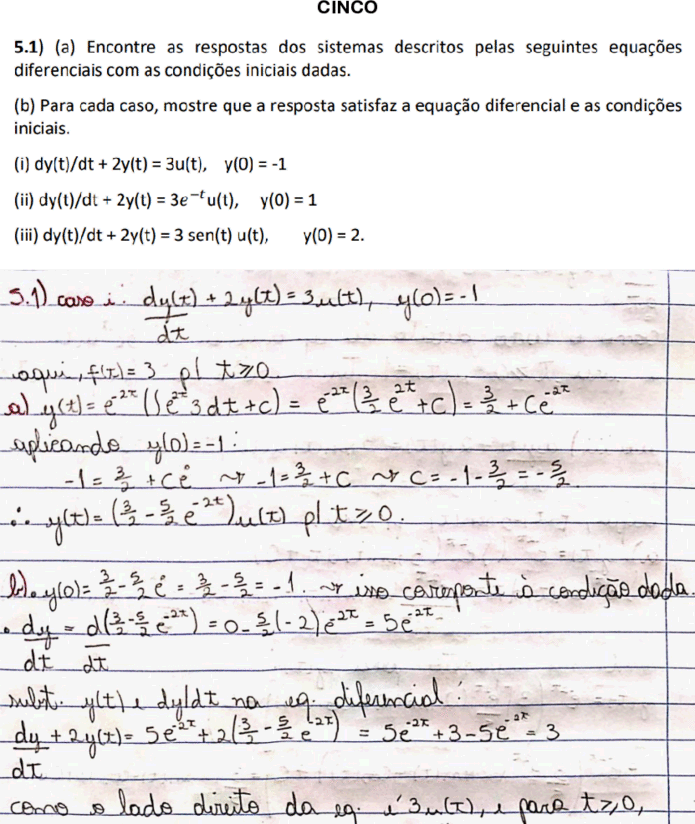 CINCO
5.1) (a) Encontre as respostas dos sistemas descritos pelas seguintes equações
diferenciais com as condições iniciais dadas.
(b) Para cada caso, mostre que a resposta satisfaz a equação diferencial e as condições
iniciais.
(i) dy(t)/dt + 2y(t) = 3u(t), y(0) = -1
(ii) dy(t)/dt + 2y(t) = 3e⁻ᵗu(t), y(0) = 1
(iii) dy(t)/dt + 2y(t) = 3 sen(t) u(t), y(0) = 2.
5.1) caso i: dy(t)/dt + 2y(t) = 3u(t), y(0) = -1
aqui, f(t) = 3 p/ t ≥ 0
a) y(t) = e^-2t (∫e^2t 3 dt + c) = e^-2t (3/2 e^2t + c) = 3/2 + Ce^-2t
aplicando y(0) = -1:
-1 = 3/2 + Ce^0 ⇝ -1 = 3/2 + C ⇝ C = -1 - 3/2 = -5/2
∴ y(t) = (3/2 - 5/2 e^-2t) u(t) p/ t ≥ 0.
b) • y(0) = 3/2 - 5/2 e^0 = 3/2 - 5/2 = -1. ⇝ isso corresponte à condição dada.
• dy/dt = d/dt (3/2 - 5/2 e^-2t) = 0 - 5/2 (-2) e^-2t = 5e^-2t
subst. y(t) e dy/dt na eq. diferencial:
dy/dt + 2y(t) = 5e^-2t + 2(3/2 - 5/2 e^(-2t)) = 5e^-2t + 3 - 5e^-2t = 3
como o lado direito da eq. é 3u(t), e para t ≥ 0,